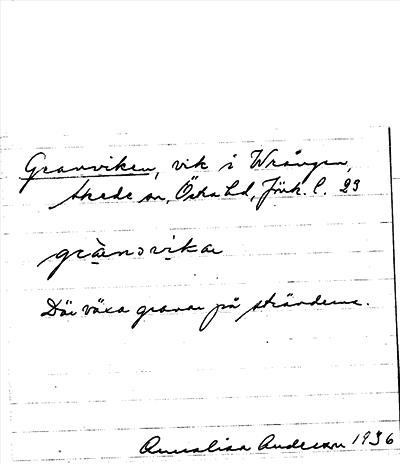 Granviken, vik i Wrången,
Skede sn, Östra hd, Jönk. l. 23
grànɔvika
Där växa granar på stränderna.
Annalisa Anderson 1936